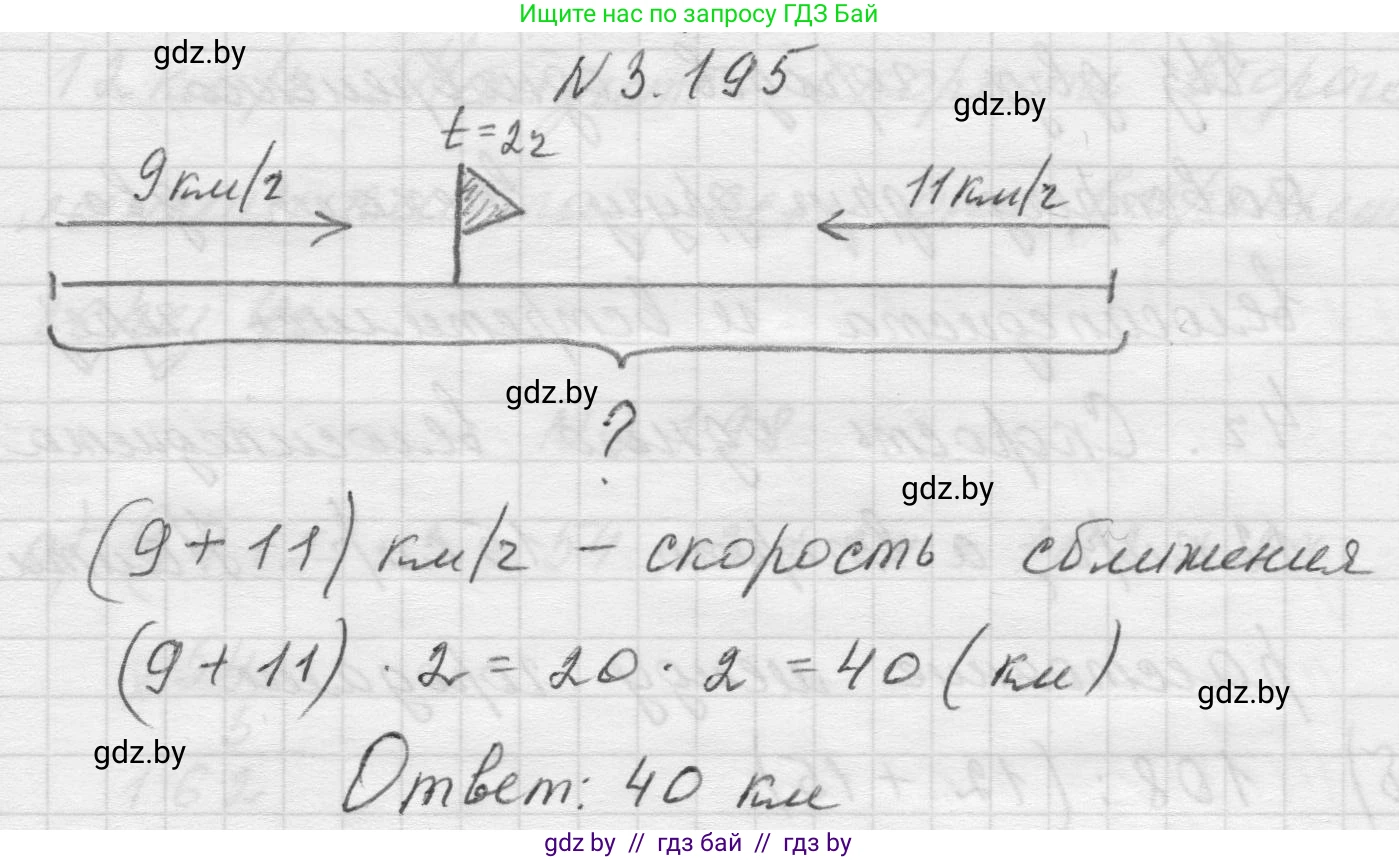 Ищите нас по запросу ГДЗ Бай
gdz.by
N 3.195
gdz.by
t = 2ч
9 км/ч
11 км/ч
gdz.by
?
gdz.by
(9 + 11) км/ч – скорость сближения
(9 + 11) · 2 = 20 · 2 = 40 (км)
gdz.by
gdz.by
Ответ: 40 км
gdz by // гдз бай // гдз by